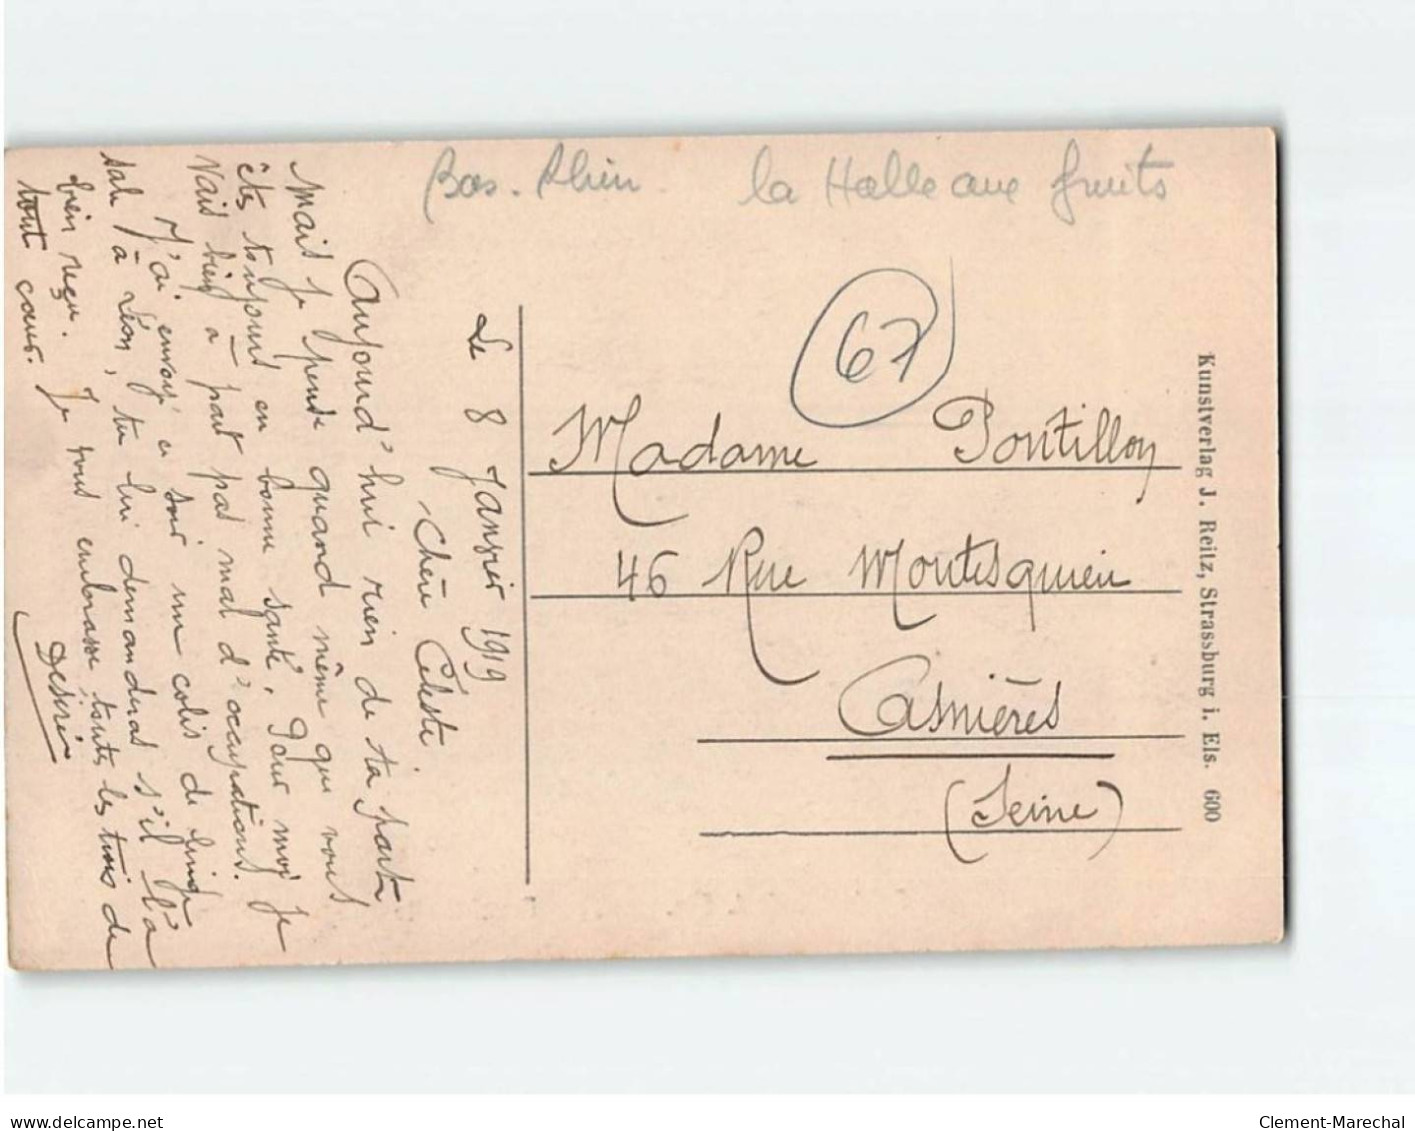 Bas-Rhin la Halle aux fruits
67
Le 8 Janvier 1919
Chère Céleste
Aujourd'hui rien de ta part
Mais je pense quand même que vous
êtes toujours en bonne santé. Pour moi je
vais bien à part pas mal d'occupations.
J'ai envoyé ce soir un colis de linge
sale à Léon, tu lui demanderas s'il l'a
bien reçu. Je vous embrasse toutes les trois de
tout cœur.
Désiré
Madame Pontillon
46 Rue Montesquieu
Asnières
(Seine)
Kunstverlag J. Reitz, Strassburg i. Els. 600
delcampe.net
Clement-Marechal